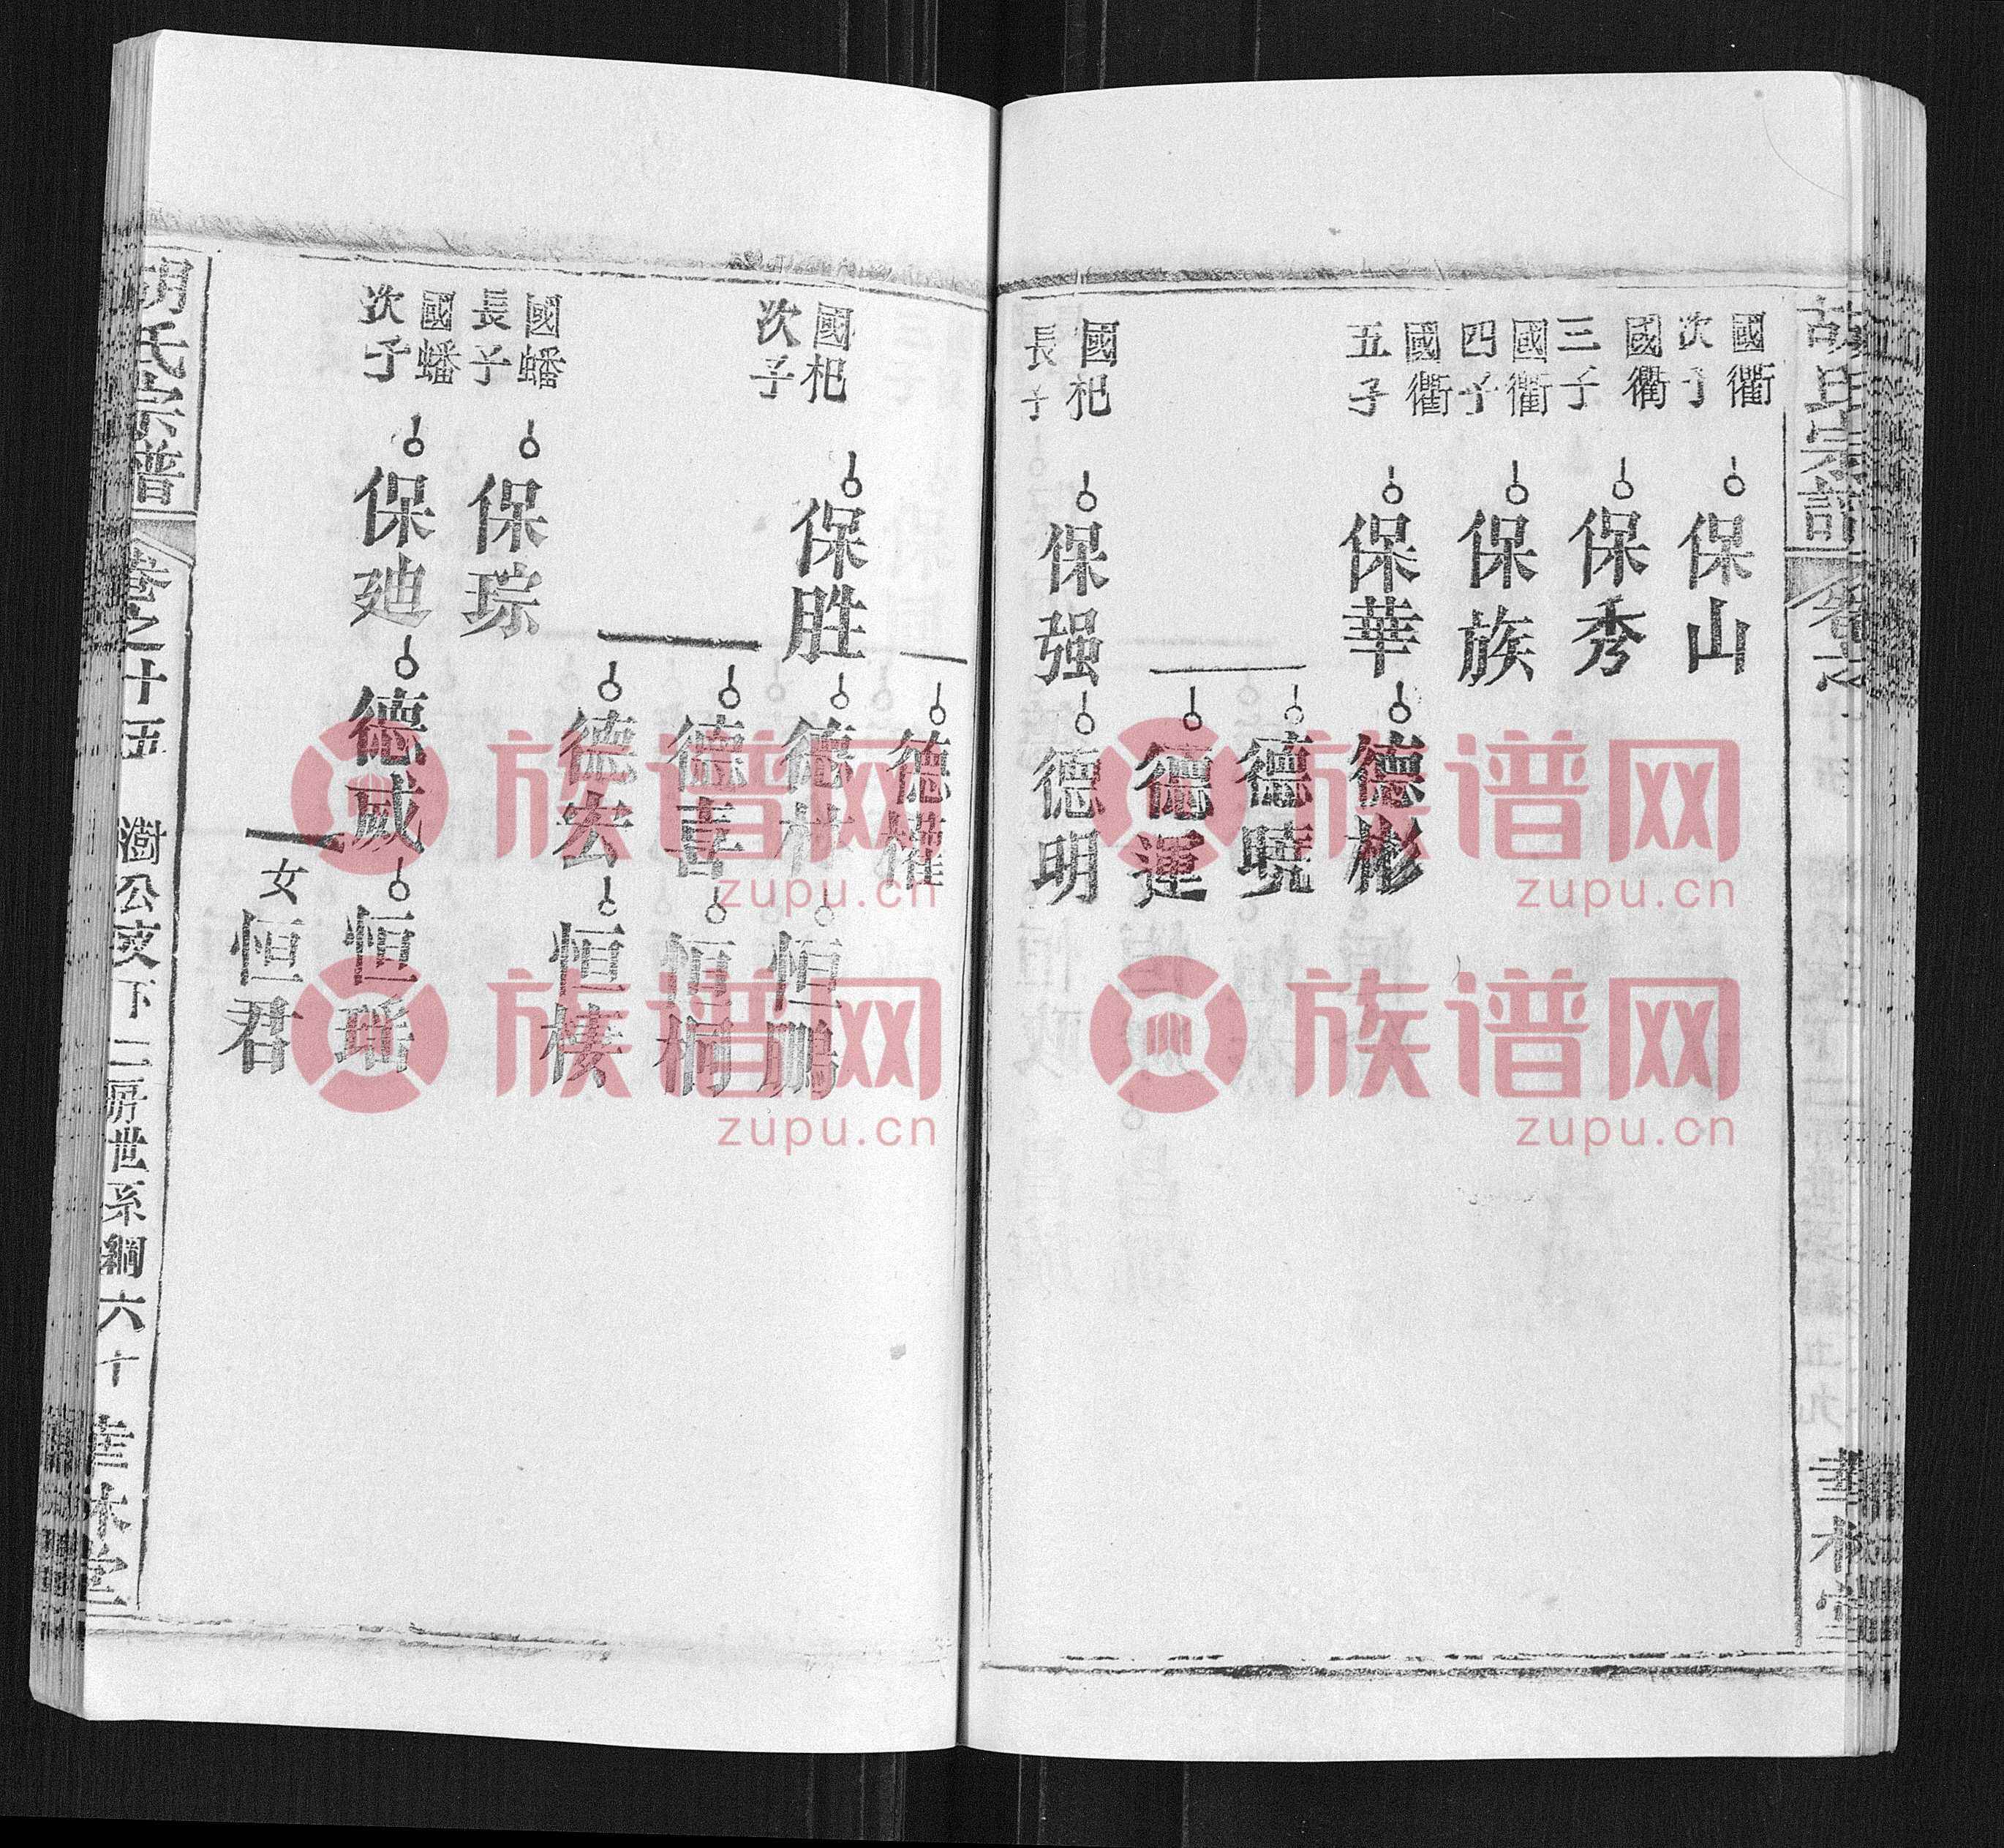 胡氏宗譜
國衢
次子
保山
國衢
三子
保秀
國衢
四子
保族
國衢
五子
保華
德彬
德曉
德運
國杞
長子
保强
德明
華林堂
德權
國杞
次子
保胜
德林
恒鵬
德喜
恒桐
德宏
恒棲
國蟠
長子
保琮
國蟠
次子
保廸
德威
恒瑶
女
恒君
胡氏宗譜
卷之十五
澍公支下二房世系綱
六十
華林堂
族谱网
zupu.cn
族谱网
zupu.cn
族谱网
zupu.cn
族谱网
zupu.cn